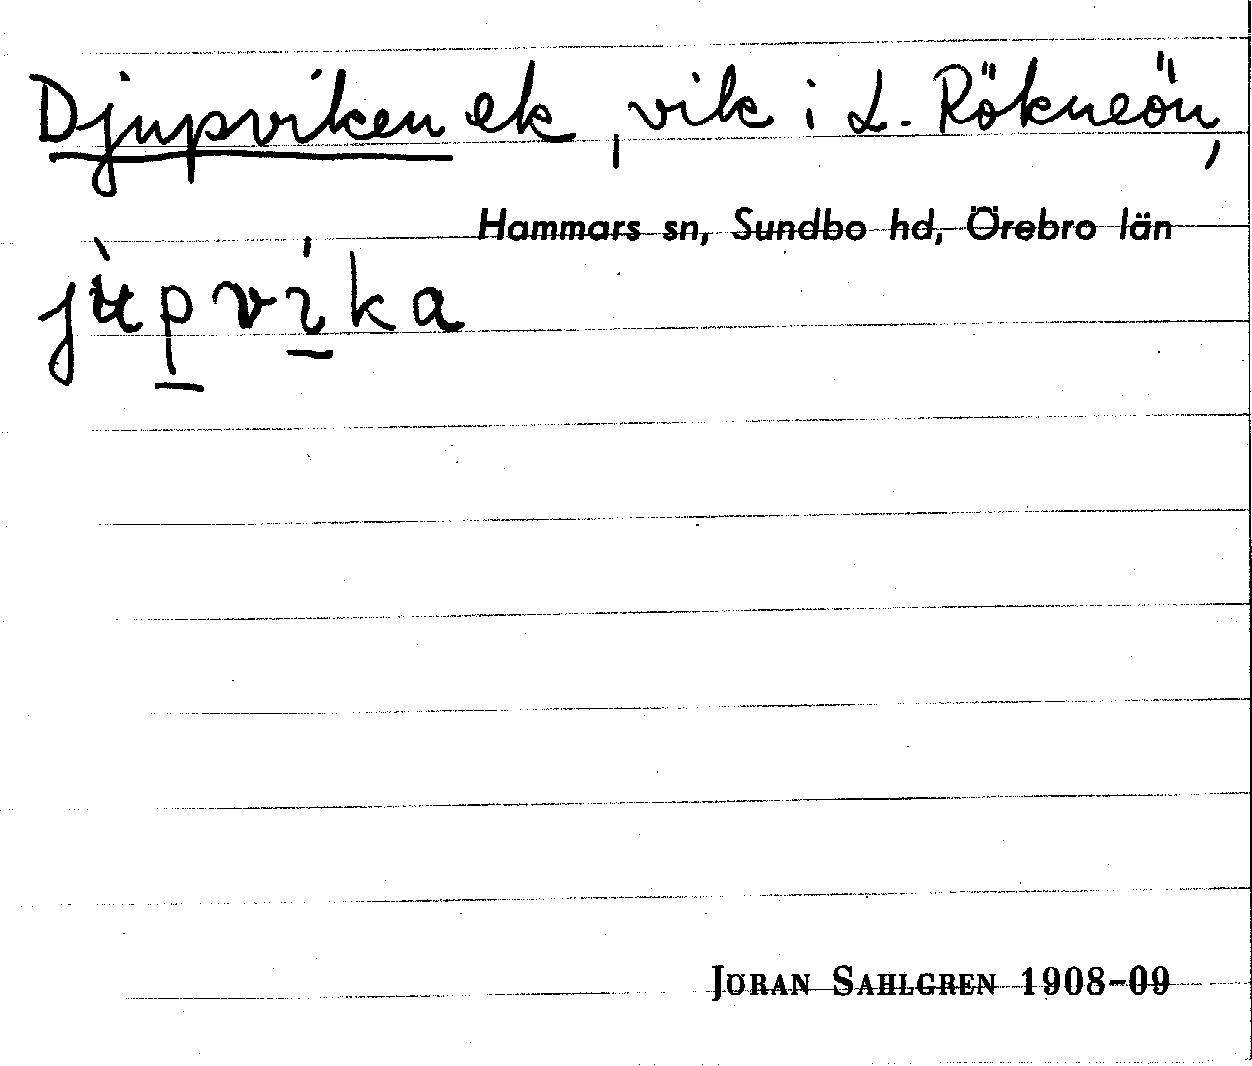 Djupviken ek, vik i L. Rökneön,
Hammars sn, Sundbo hd, Örebro län
jùpvíka
JÖRAN SAHLGREN 1908-09